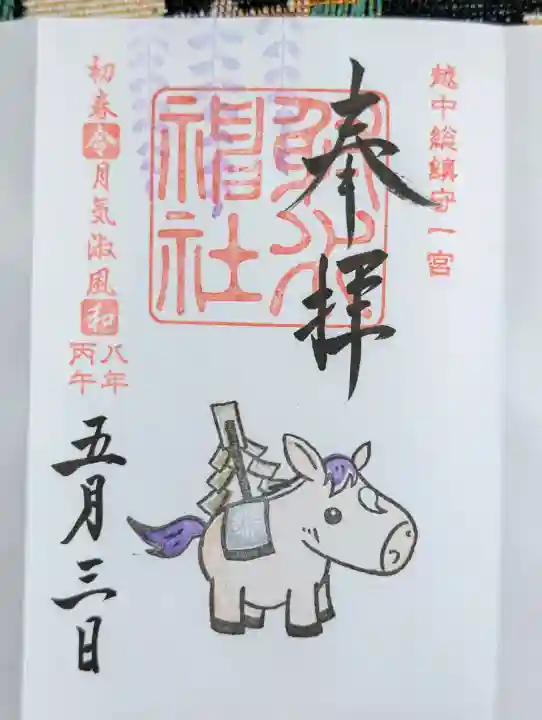 越中総鎮守一宮
奉拝
射水
神社
初春令月気淑風和
八年
丙午
五月三日